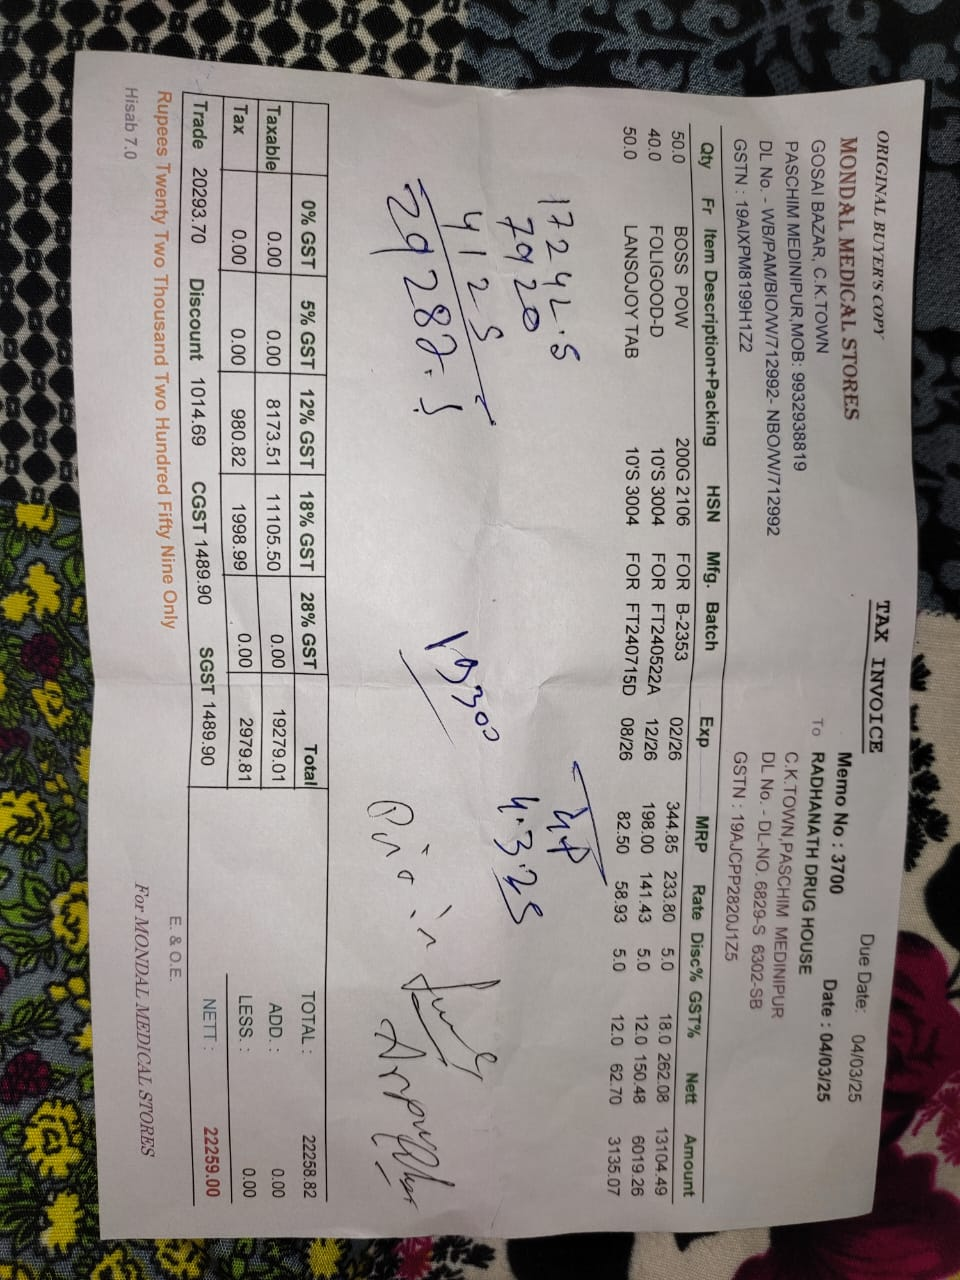 ORIGINAL BUYER'S COPY
TAX INVOICE
Due Date: 04/03/25
MONDAL MEDICAL STORES
Memo No : 3700
Date : 04/03/25
GOSAI BAZAR, C.K.TOWN
To RADHANATH DRUG HOUSE
PASCHIM MEDINIPUR,MOB: 9932938819
C.K.TOWN,PASCHIM MEDINIPUR
DL No. - WB/PAM/BIO/W/712992- NBO/W/712992
DL No. - DL-NO. 6829-S 6302-SB
GSTN : 19AIXPM8199H1Z2
GSTN : 19AJCPP2820J1Z5
Qty Fr Item Description+Packing HSN Mfg. Batch Exp MRP Rate Disc% GST% Nett Amount
50.0 BOSS POW 200G 2106 FOR B-2353 02/26 344.85 233.80 5.0 18.0 262.08 13104.49
40.0 FOLIGOOD-D 10'S 3004 FOR FT240522A 12/26 198.00 141.43 5.0 12.0 150.48 6019.26
50.0 LANSOJOY TAB 10'S 3004 FOR FT240715D 08/26 82.50 58.93 5.0 12.0 62.70 3135.07
17242.5
7920
4125
29287.5
19300
4.3.25
0% GST 5% GST 12% GST 18% GST 28% GST Total
Taxable 0.00 0.00 8173.51 11105.50 0.00 19279.01
Tax 0.00 0.00 980.82 1998.99 0.00 2979.81
TOTAL : 22258.82
ADD. : 0.00
LESS. : 0.00
NETT : 22259.00
Trade 20293.70 Discount 1014.69 CGST 1489.90 SGST 1489.90
Rupees Twenty Two Thousand Two Hundred Fifty Nine Only
E. & O.E.
Hisab 7.0
For MONDAL MEDICAL STORES